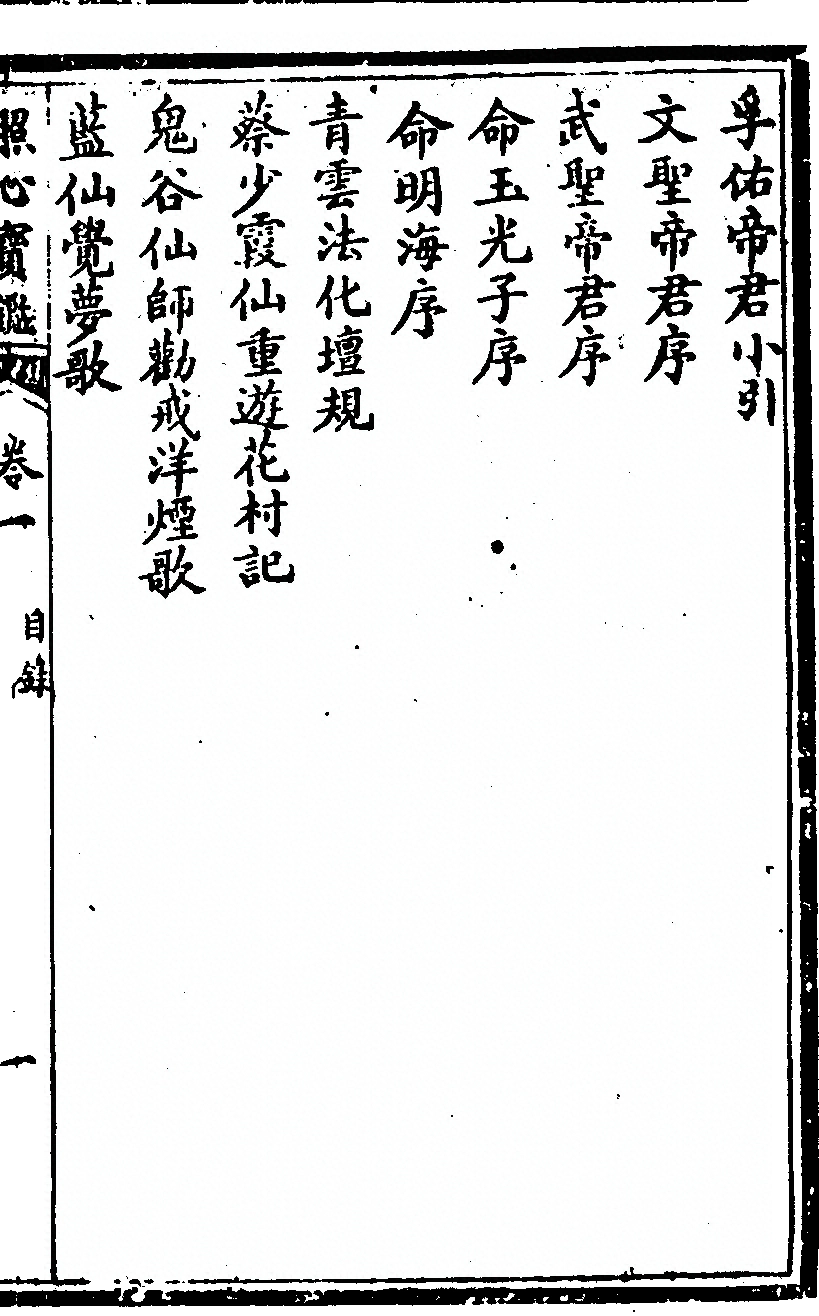 孚佑帝君小引
文聖帝君序
武聖帝君序
命玉光子序
命明海序
青雲法化壇規
蔡少霞仙重遊花村記
鬼谷仙師勸戒洋煙歌
藍仙覺夢歌
照心寶鑑
卷一
目錄
一